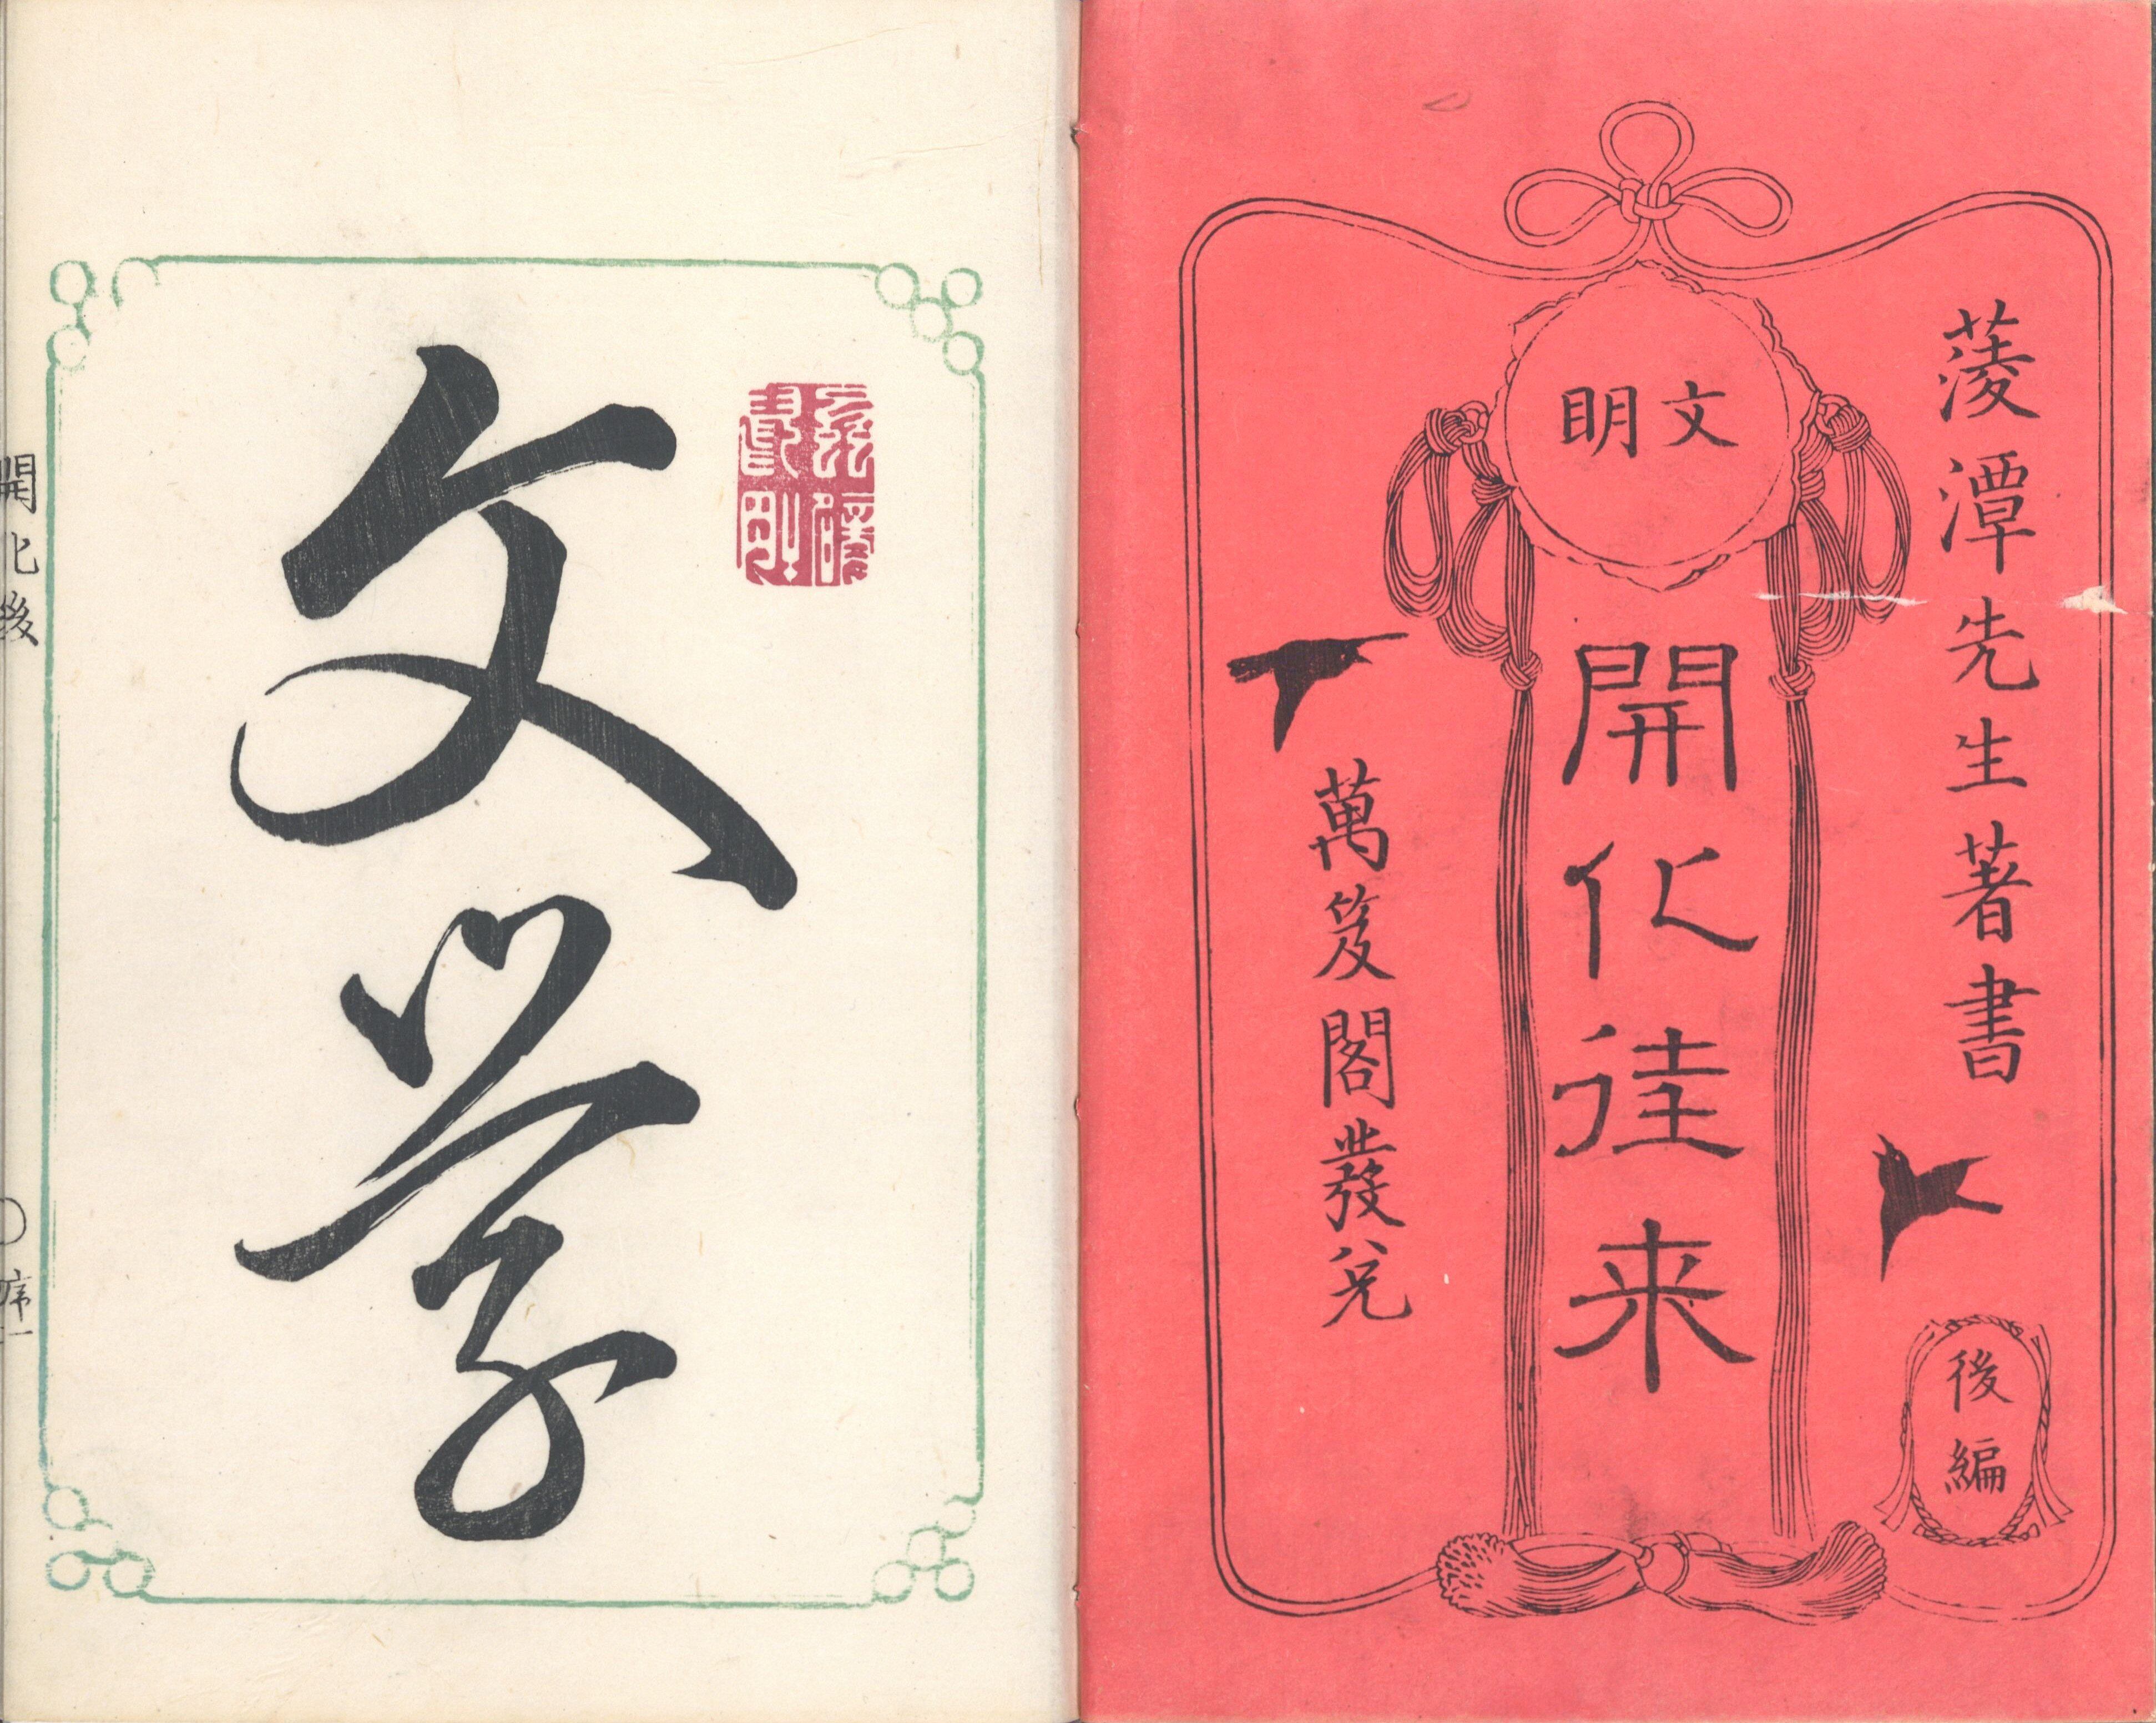 菱潭先生著書
文明
開化徃来
後編
萬笈閣發兌
文学
開化後
序一